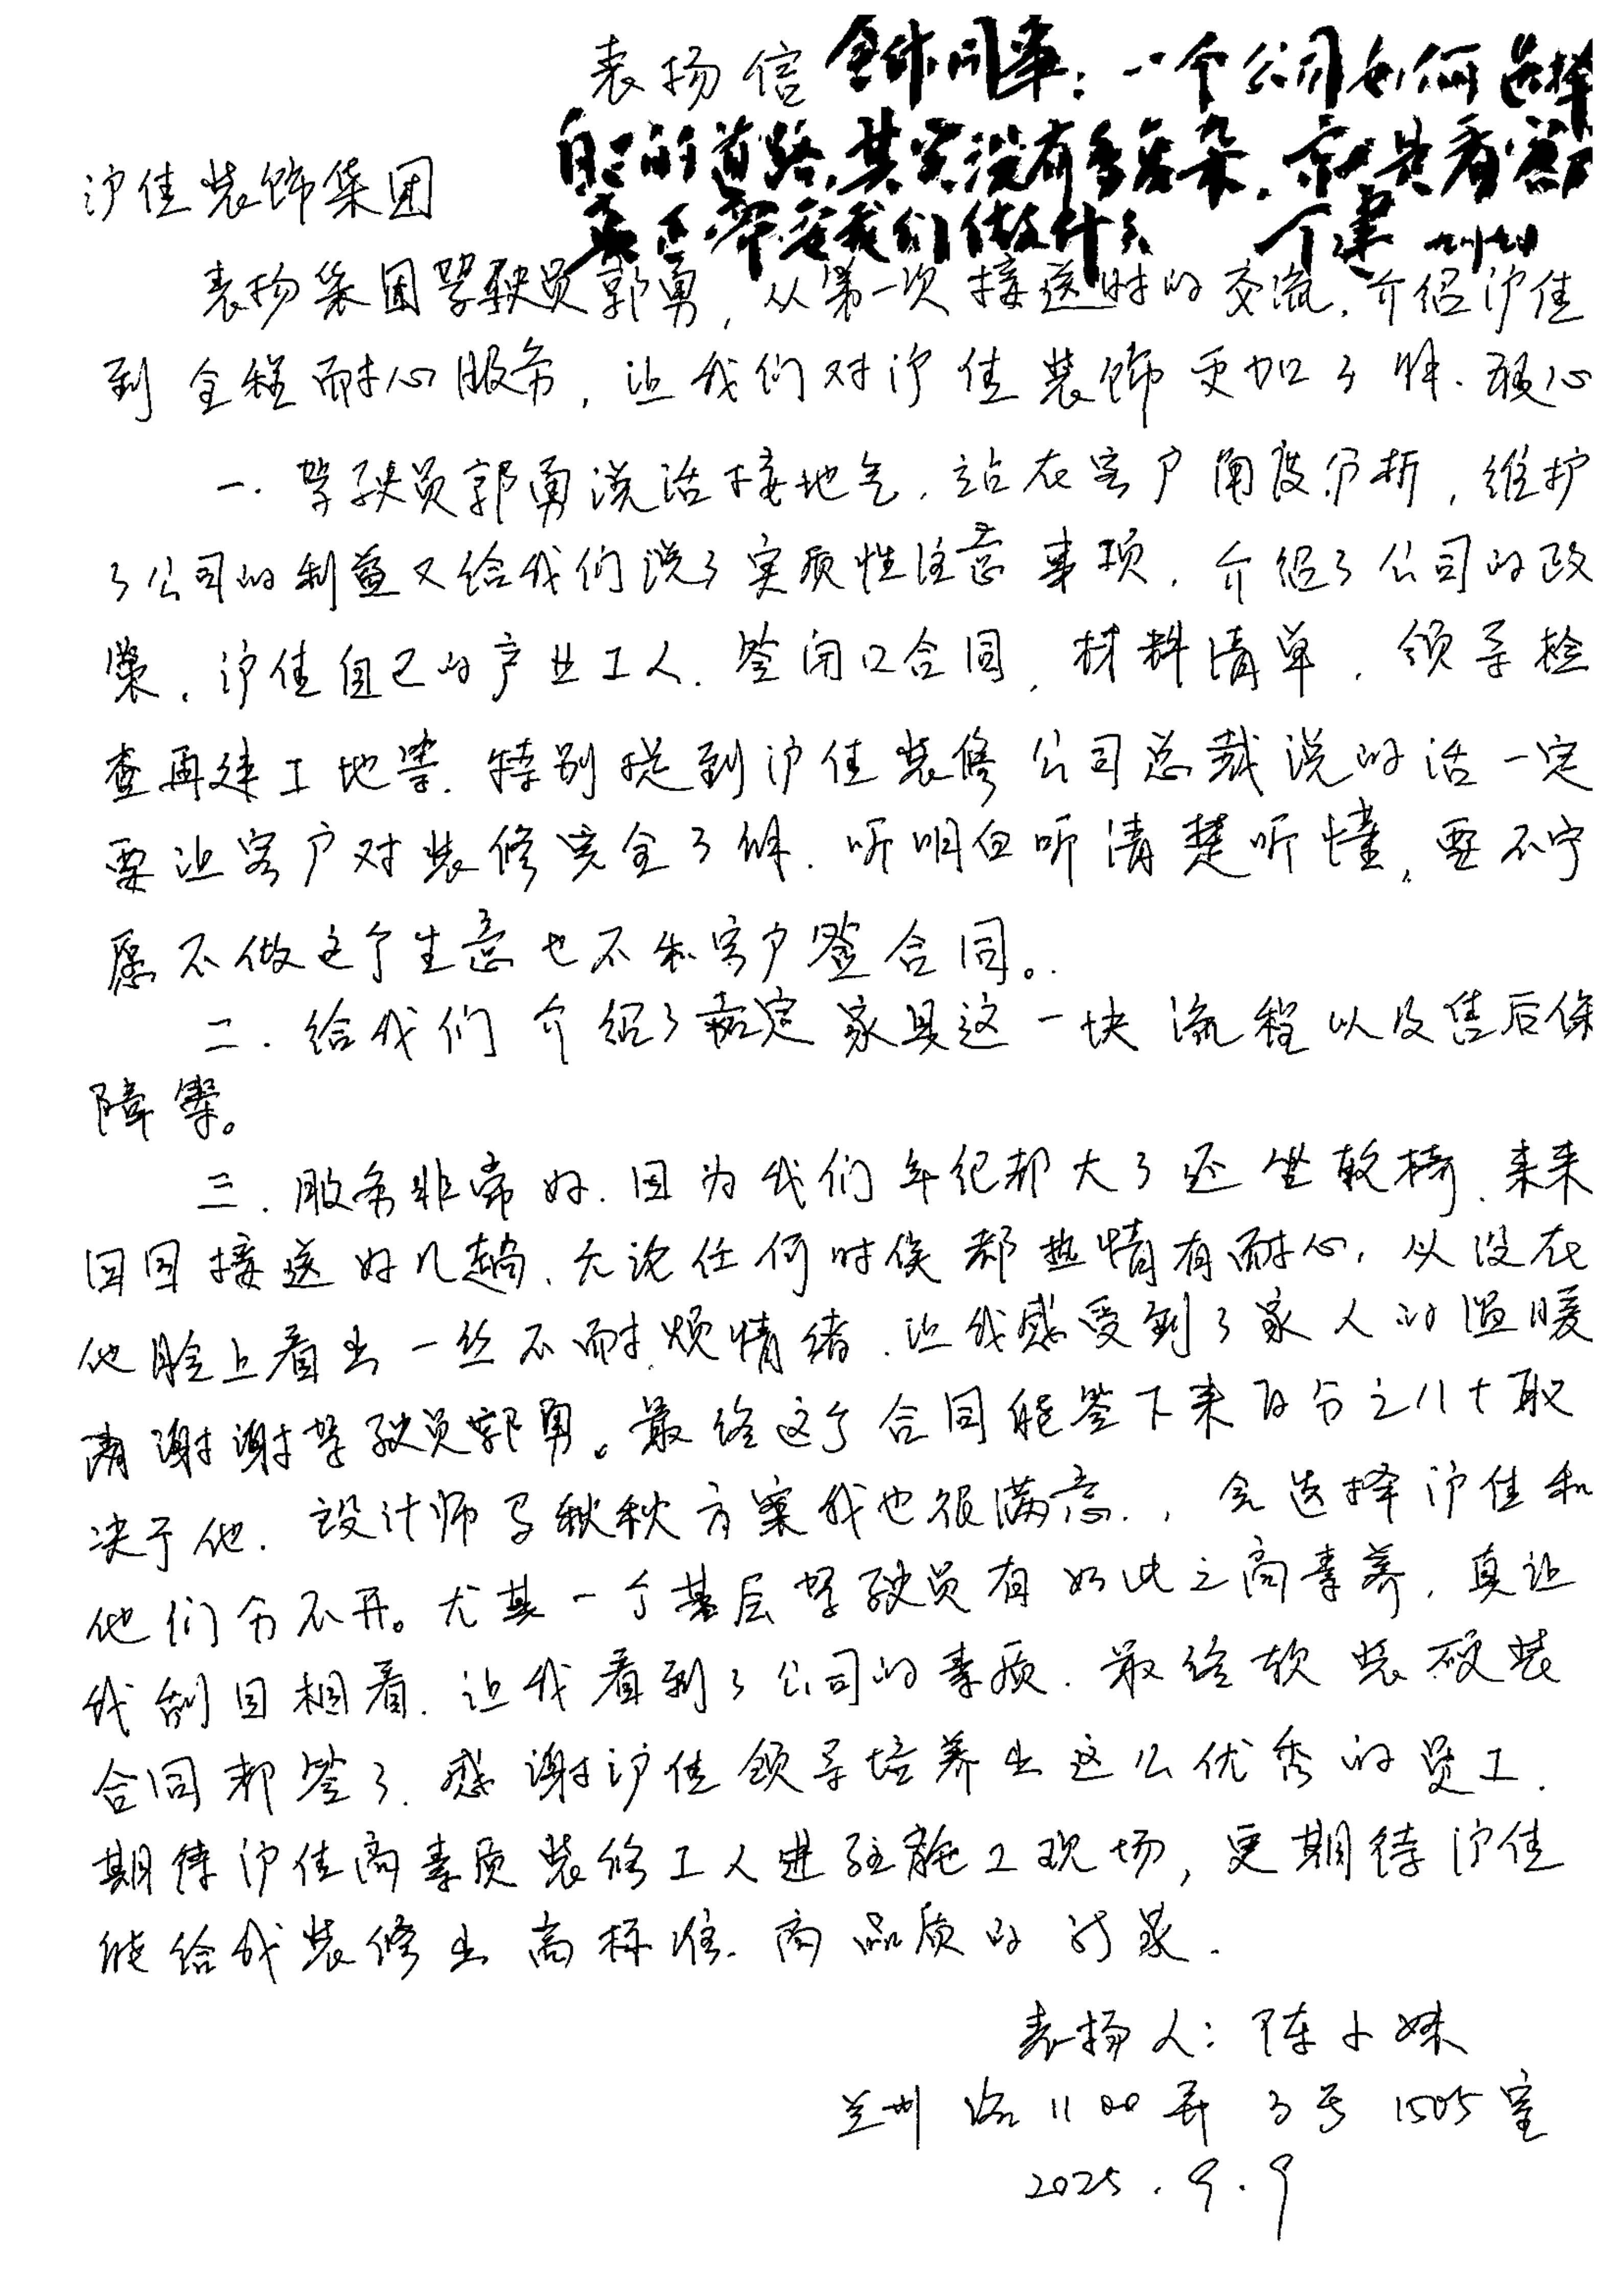 表扬信
全体同事：一个公司如何选择
自己的道路，其实没有多复杂，就是看客户
真正需要我们做什么
沪佳装饰集团
表扬集团驾驶员郭勇，从第一次接送时的交流，介绍沪佳
到全程耐心服务，让我们对沪佳装饰更加了解、放心
一、驾驶员郭勇说话接地气，站在客户角度分析，维护
了公司的利益又给我们说了实质性注意事项，介绍了公司的政
策，沪佳自己的产业工人、签闭口合同，材料清单，领导检
查再建工地等，特别提到沪佳装修公司总裁说的话一定
要让客户对装修完全了解、听明白听清楚听懂，要不宁
愿不做这个生意也不和客户签合同。
二、给我们介绍了嘉定家具这一块流程以及售后保
障等。
三、服务非常好，因为我们年纪都大了还坐轮椅、来来
回回接送好几趟、无论任何时侯都热情有耐心，从没在
他脸上看出一丝不耐烦情绪、让我感受到了家人的温暖
再谢谢驾驶员郭勇。最终这个合同能签下来百分之八十取
决于他、设计师马秋秋方案我也很满意，会选择沪佳和
他们分不开。尤其一个基层驾驶员有如此之高素养，真让
我刮目相看、让我看到了公司的素质、最终软装硬装
合同都签了、感谢沪佳领导培养出这么优秀的员工、
期待沪佳高素质装修工人进驻施工现场，更期待沪佳
能给我装修出高标准、高品质的新家.
表扬人：陈小妹
兰州路1100弄3号1505室
2025.9.9